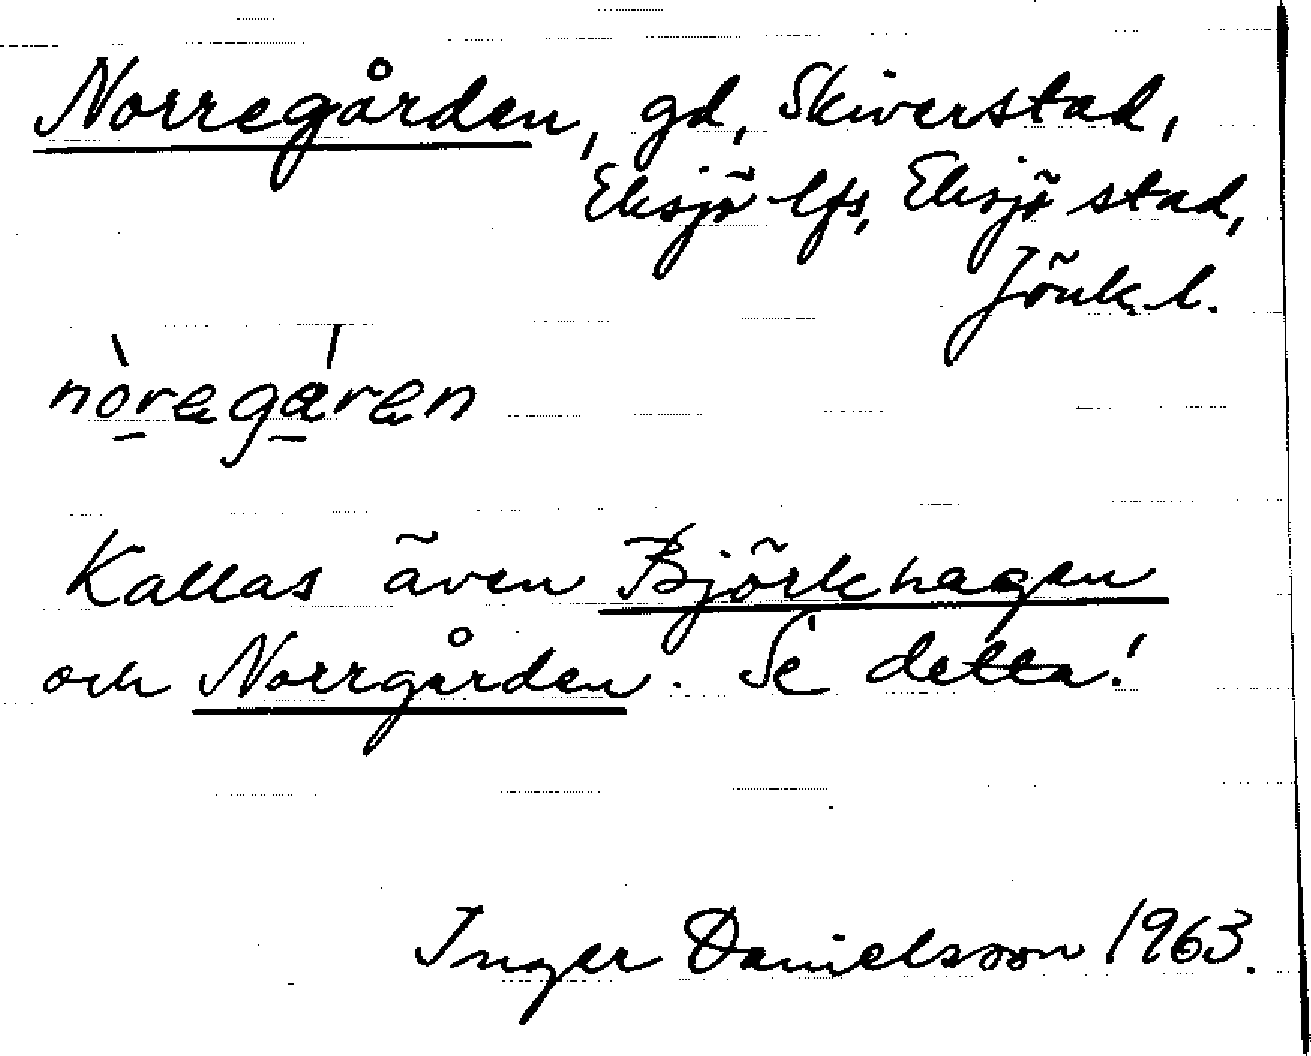 Norregården, gd, Skiverstad,
Eksjö lfs, Eksjö stad,
Jönk. l.
nòregáren
Kallas även Björkhagen
och Norrgården. Se detta!
Inger Danielsson 1963.